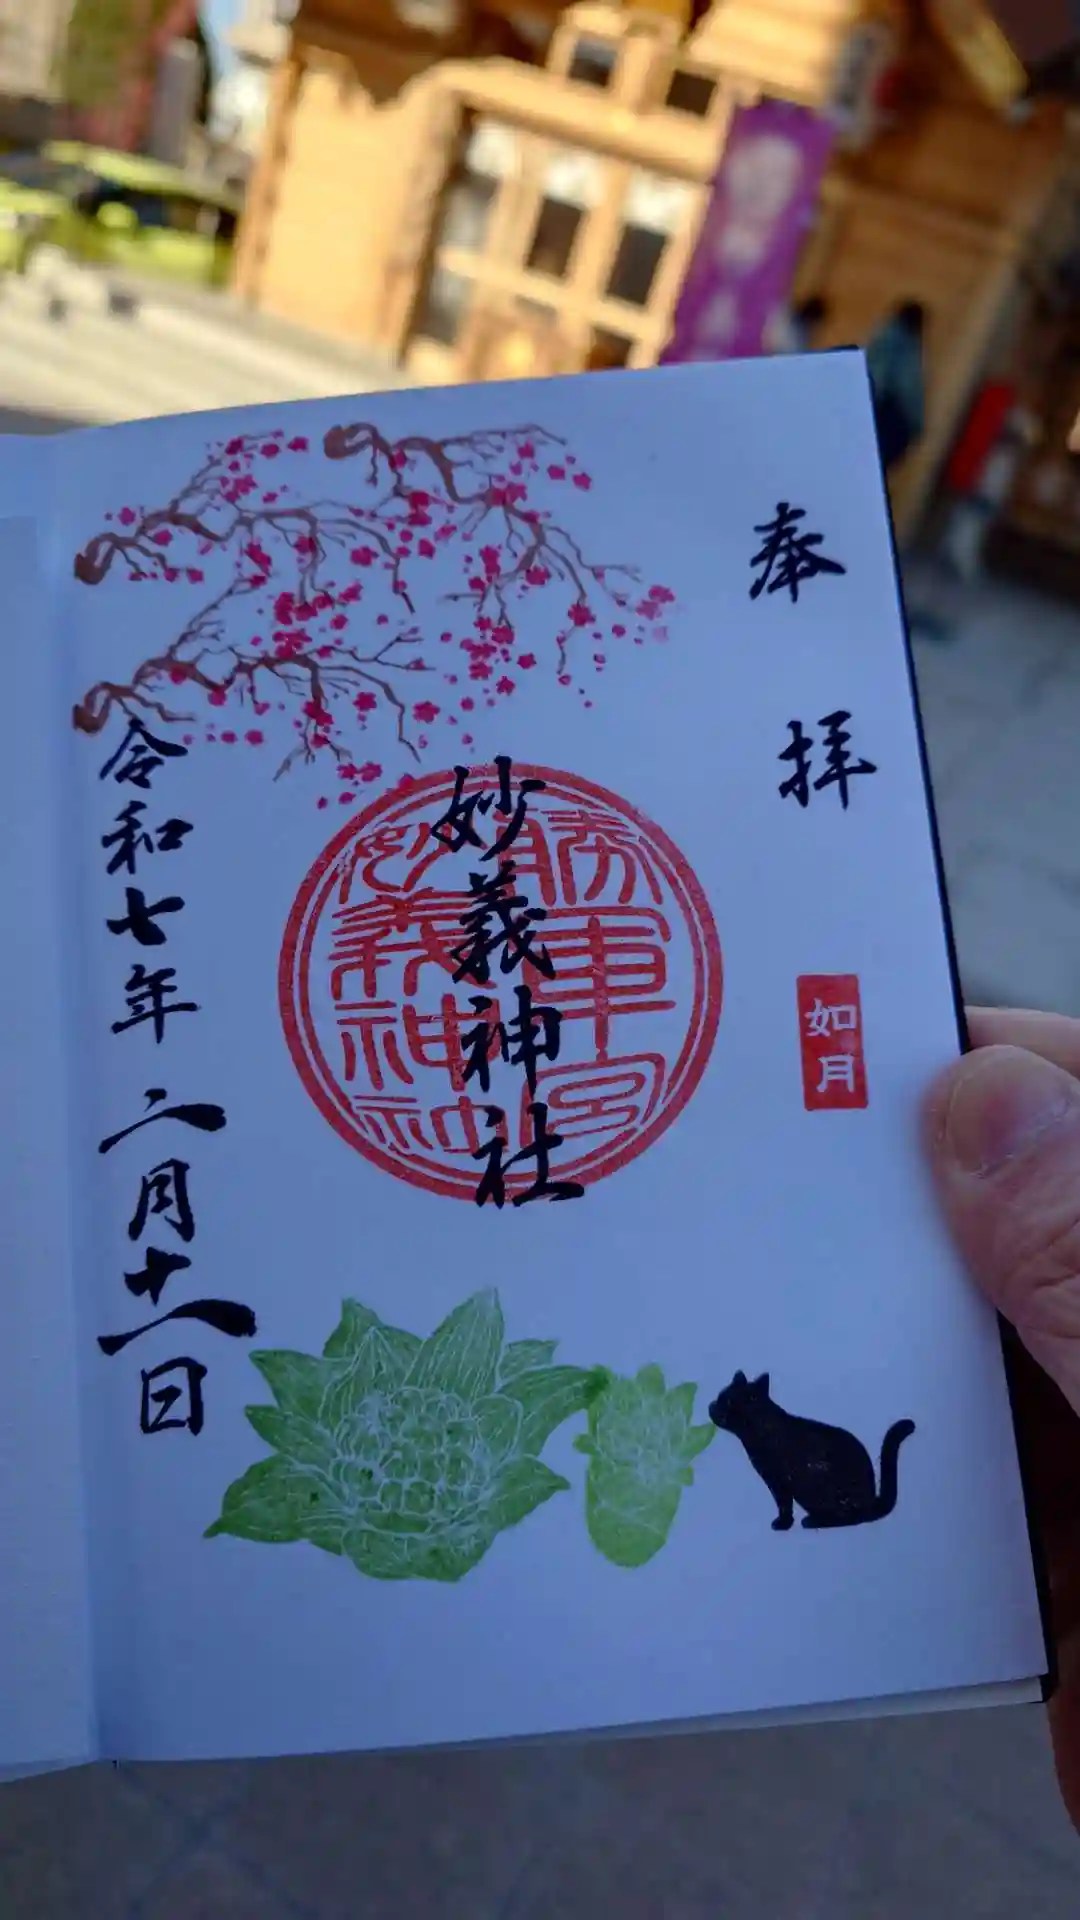 奉拝
如月
妙義神社
勝軍宮
妙義神社
令和七年二月十一日